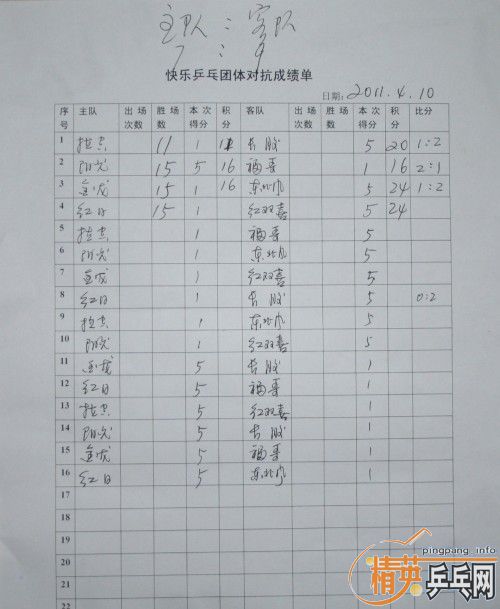 主队 : 客队
7 : 9
快乐乒乓团体对抗成绩单
日期: 2011.4.10
序号 主队 出场次数 胜场次数 本次得分 积分 客队 出场次数 胜场次数 本次得分 积分 比分
1 拉杰 11 1 12 长胶 5 20 1:2
2 阳光 15 5 16 福哥 1 16 2:1
3 金龙 15 1 16 东北风 5 24 1:2
4 红日 15 1 红双喜 5 24
5 拉杰 1 福哥 5
6 阳光 1 东北风 5
7 金龙 1 红双喜 5
8 红日 1 长胶 5 0:2
9 拉杰 1 东北风 5
10 阳光 1 红双喜 5
11 金龙 5 长胶 1
12 红日 5 福哥 1
13 拉杰 5 红双喜 1
14 阳光 5 长胶 1
15 金龙 5 福哥 1
16 红日 5 东北风 1
17
18
19
20
21
22
pingpang.info
精英乒乓网